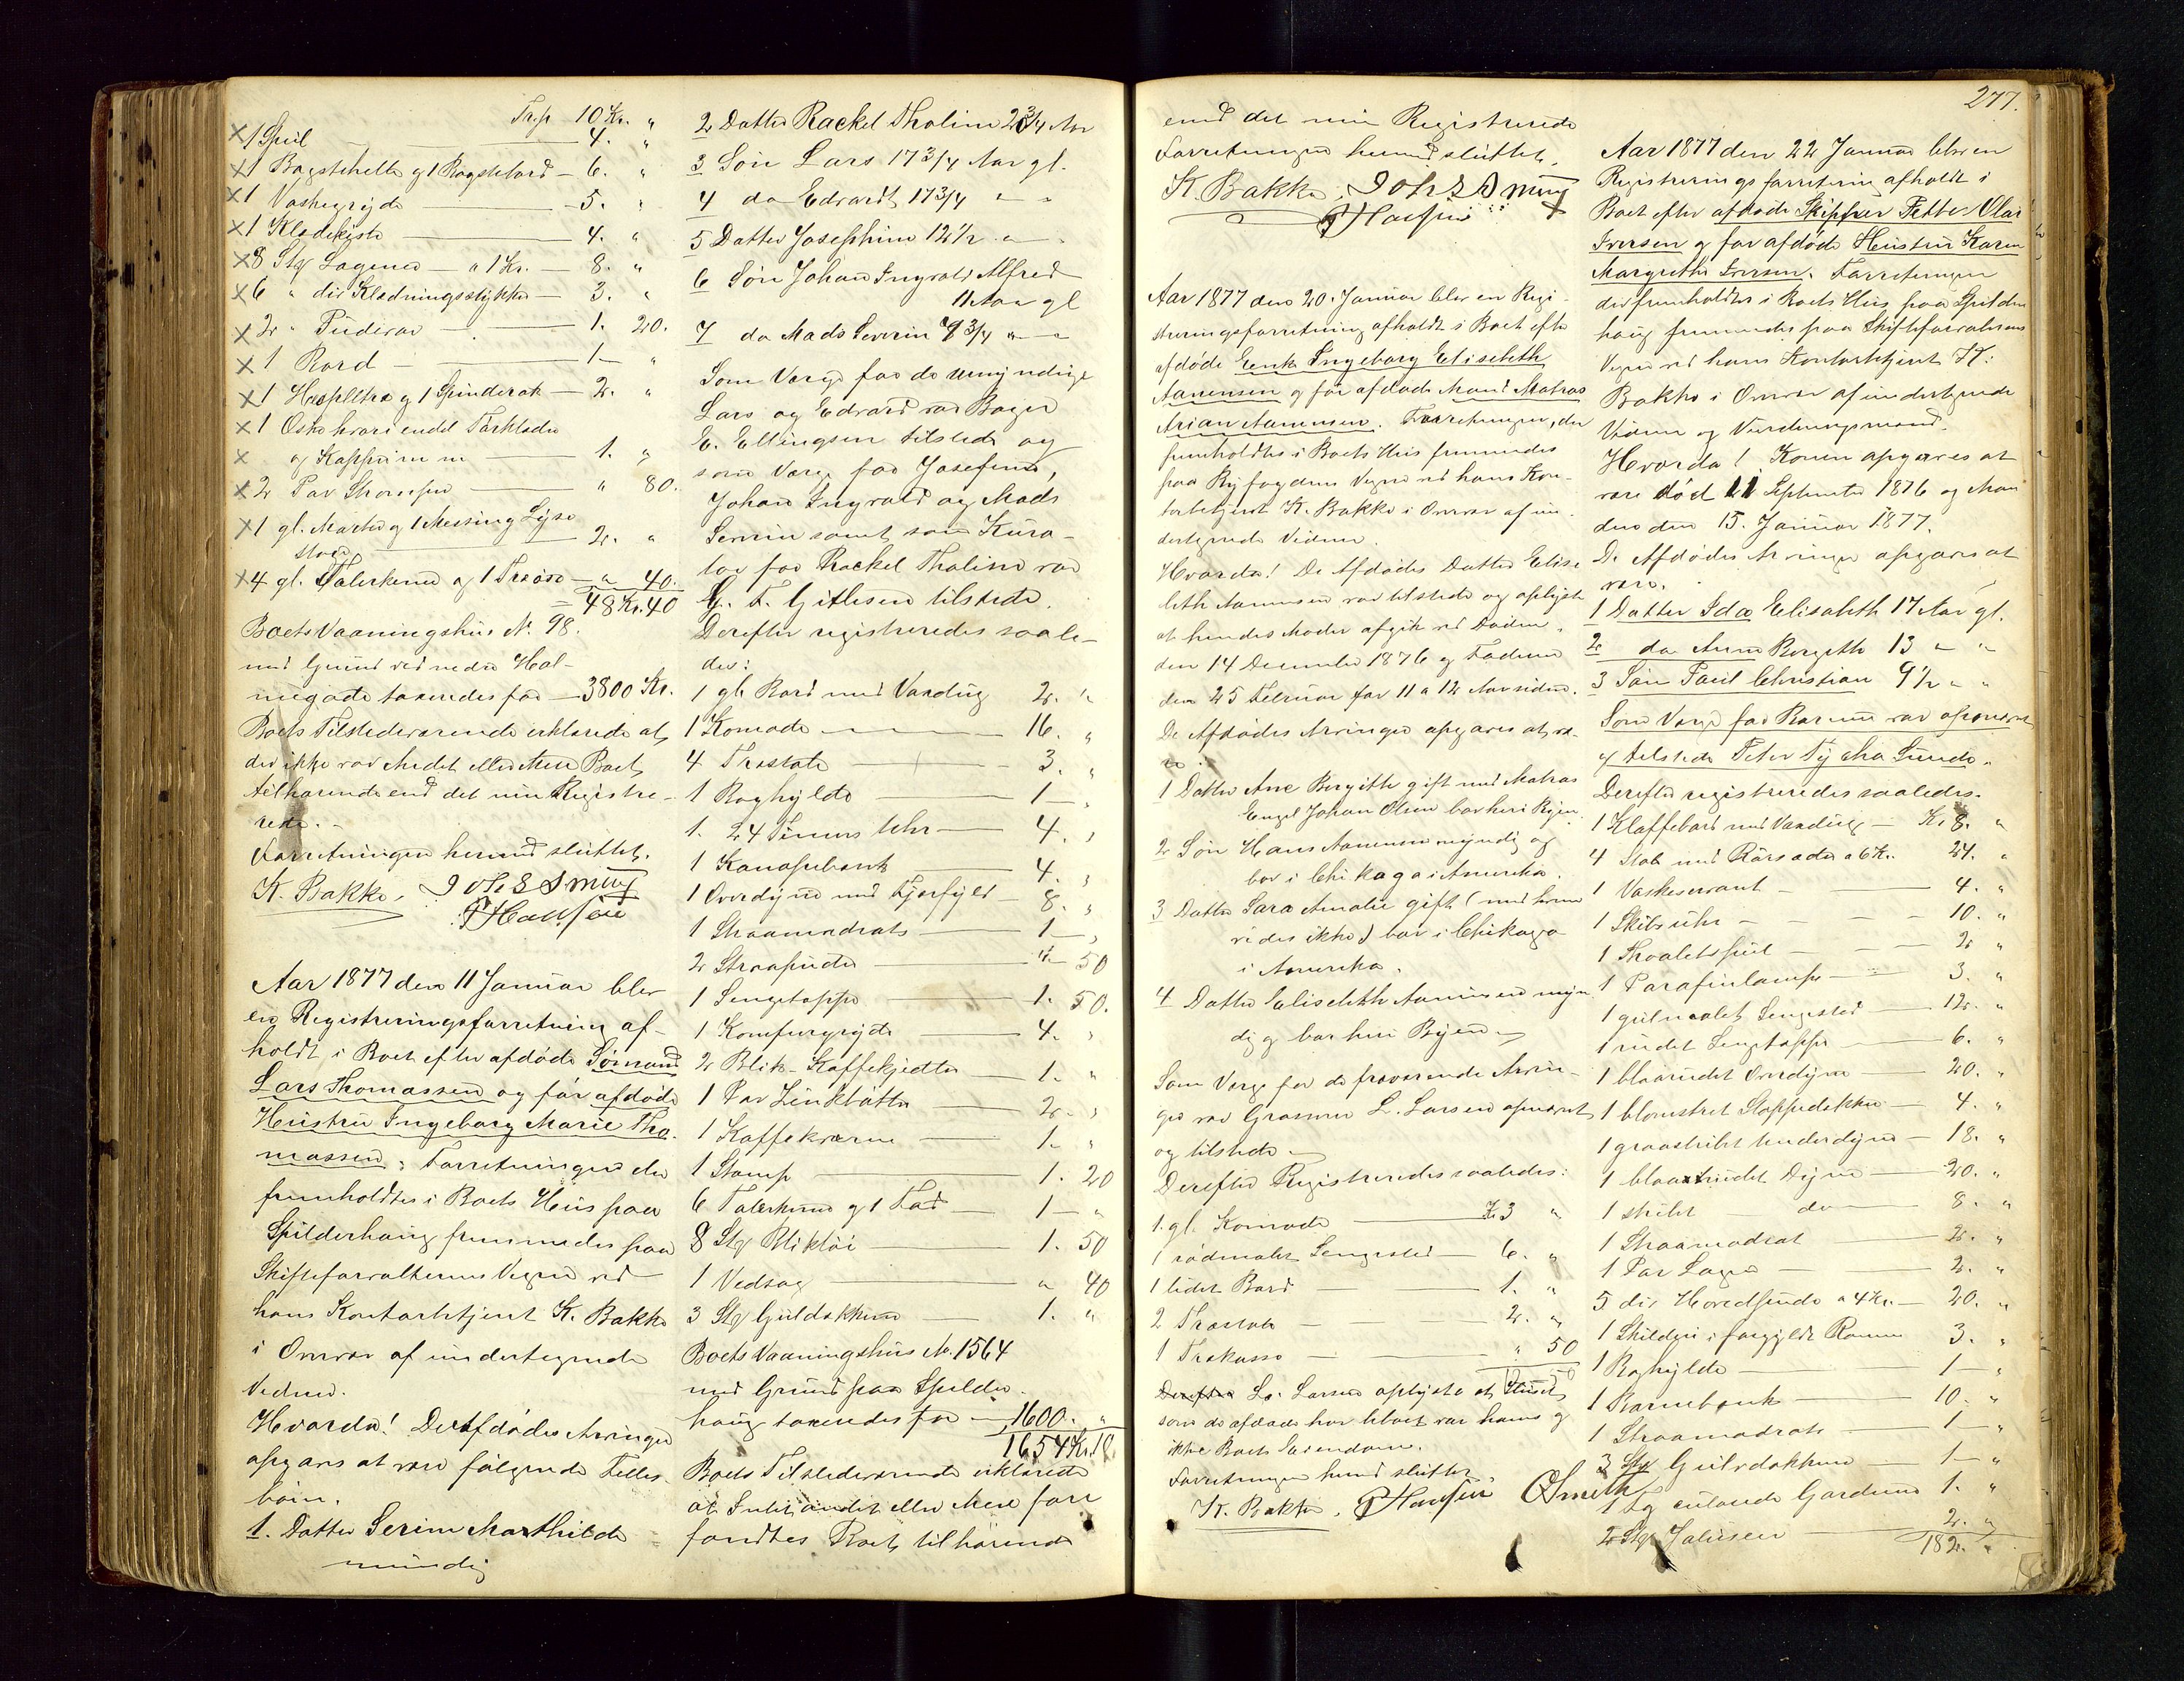 Trsp 10 Kr. "
× 1 Speil — 4. "
× 1 Bagstehelle og 1 Bagstebord — 6. "
× 1 Vaskegryde — 5. "
× 1 Klædekiste — 4. "
× 8 Stkr Lagener — a 1 Kr. — 8. "
× 6 " div Klædningsstykker — 3. "
× 2 " Puderar — 1. 20.
× 1 Bord — 1 — "
× 1 Haspeltre og 1 Spinderok — 2. "
× 1 Eske hvori endel Tørklæder
× og — 1. "
× 2 Par — " 80.
× 1 gl. Morter og 1 Messing Lyse
stage — 2. "
× 4 gl. Talerkener og 1 — " 40.
= 48 Kr. 40
Boets Vaaningshus No. 98.
med Grund ved nedre Hol-
megade taxeredes for — 3800 Kr.
Boets Tilstedeværende erklærede at
der ikke var Andet eller Mere Boet
tilhørende end det nu Registre-
rede. —
Forretningen hermed sluttet.
K. Bakke, Johs Smug
P Hansen
Aar 1877 den 11 Januar blev
en Registreringsforretning af-
holdt i Boet efter afdøde Sømand
Lars Thomassen og før afdøde
Hustru Ingeborg Marie Tho-
massen. Forretningen der
fremholdtes i Boets Hus paa
Spilderhaug fremmedes paa
Skifteforvalterens Vegne ved
hans Kontorbetjent K. Bakke
i Overvær af undertegnede
Vidner.
Hvorda! De Afdødes Arvinger
opgaves at være følgende Felles-
børn.
1. Datter Serine Marthilde
mündig
2 Datter Rackel Tholine 23/4 Aar
3 Søn Lars 17 3/4 Aar gl.
4 do Edvardt 17 3/4 " "
5 Datter Josephine 12 1/2 " "
6 Søn Johan Ingvald Alfred
11 Aar gl
7 do Mads Severin 9 3/4 " "
Som Værge for de umyndige
Lars og Edvard var Bager
E. Ellingsen tilstede og
som Værge for Josefine,
Johan Ingvald og Mads
Severin samt som Kura-
tor for Rackel Tholine var
G. T. Gitlesen tilstede.
Derefter registreredes saale-
des:
1 gl. Bord med Voxdug 2. "
1 Komode — 16. "
4 Træstole — 3. "
1 Boghylde — 1 — "
1. 24 Timers Uhr — 4. "
1 Kanapebænk — 4. "
1 Overdyne med Fjerfyld — 8. "
1 Straamadrats — 1 — "
2 Straapuder — " 50
1 Sengetæppe — 1. 50.
1 Komfurgryde — 4. "
2 Blik-Kaffekjedler — 1. "
1 Par Zinkbøtter — 2. "
1 Kaffekværn — 1. "
1 Stamp — 1. 20
6 Talerkener og 1 Fad — 1 — "
8 Stkr Bliktøi — 1. 50
1 Vedsag — " 40
3 Stkr Guldokkuner — 1. "
Boets Vaaningshus No. 1564
med Grund paa Spilder-
haug taxeredes for — 1600. "
1654 Kr. 10
Boets Tilstedeværende erklærede
at Intet andet eller Mere fore
fandtes Boet tilhørende
277.
end det nu Registrerede
Forretningen hermed sluttet.
K. Bakke, Johs Smug
P Hansen
Aar 1877 den 20. Januar blev en Regi-
streringsforretning afholdt i Boet efter
afdøde Enke Ingeborg Elisebeth
Aanensen og før afdøde Mand Matros
Arian Aanensen. Forretningen, der
fremholdtes i Boets Hus fremmedes
paa Byfogdens Vegne ved hans Kon-
torbetjent K. Bakke i Overvær af un-
dertegnede Vidner.
Hvorda! De Afdødes Datter Elise-
beth Aanensen var tilstede og oplyste
at hendes Moder afgik ved Døden
den 14 December 1876 og Faderen
den 25 Februar for 11 a 12 Aar siden.
De Afdødes Arvinger opgaves at væ-
re:
1 Datter Ane Bergitte gift med Matros
Engel Johan Olsen bor her i Byen.
2 Søn Hans Aanensen myndig og
bor i Chikago i Amerika.
3 Datter Sara Amalie gift (med hvem
vides ikke) bor i Chikago
i Amerika.
4 Datter Elisebeth Aanensen myn
dig og bor her i Byen.
Som Værge for de fraværende Arvin-
ger var Grosserer L. Larsen opnævnt
og tilstede.
Derefter Registreredes saaledes:
1. gl. Komode — Kr 3 "
1 rødmalet Sengested — 6. "
1 lidet Bord — 1. "
2 Træstole — 2. "
1 Trækasse — " 50
12 50
Derefter L. Larsen oplyste at Huset
som de afdøde har beboet var hans og
ikke Boets Eiendom.
Forretningen hermed sluttet.
K. Bakke, P Hansen O Smith
Aar 1877 den 22 Januar blev en
Registreringsforretning afholdt i
Boet efter afdøde Skipper Fetter Olai
Iversen og før afdøde Hustru Karen
Margrethe Iversen. Forretningen
der fremholdtes i Boets Hus paa Spilder
haug fremmedes paa Skifteforvalterens
Vegne ved hans Kontorbetjent K.
Bakke i Overvær af undertegnede
Vidner og Vurderingsmænd.
Hvorda! Konen opgaves at
være død 11 September 1876 og Man
den den 15. Januar 1877.
De Afdødes Arvinger opgaves at
være.
1 Datter Ida Elisabeth 17 Aar gl.
2 do Anna Bergitte 13 " "
3 Søn Paul Christian 9 1/2 " "
Som Værge for Børnene var opnævnt
og tilstede Peter Tycho Sunde.
Derefter registreredes saaledes.
1 Klaffebord med Voxdug — Kr 8. "
4 Stole med Rørsæder a 6 Kr. 24. "
1 Vaskeservant — 4. "
1 Skibsuhr — 10. "
1 Thoaletspeil — 2 "
1 Parafinlampe — 3. "
1 gulmalet Sengested — 12. "
1 rudet Sengetæppe — 6. "
1 blaarudet Overdyne — 20. "
1 blomstret Stoppedække — 4. "
1 graastribet Underdyne — 18. "
1 blaarudet Dyne — 20. "
1 stribt do — 8. "
1 Straamadrat — 2. "
1 Par Lagen — 2. "
5 div Hovedpuder a 4 Kr. — 20. "
1 Skilderi i forgyldt Ramme 3. "
1 Boghylde — 1 — "
1 Barnebænk — 10. "
1 Straamadrats — 1 — "
3 Stkr Gulvdækkener — 1 — "
1 Fag Gardiner 1. "
2 Stkr Jalusier — 2. "
182. "